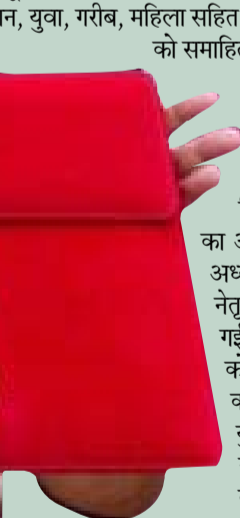 न, युवा, गरीब, महिला सहित
को समाहि
का
अध
नेतृ
गई
के